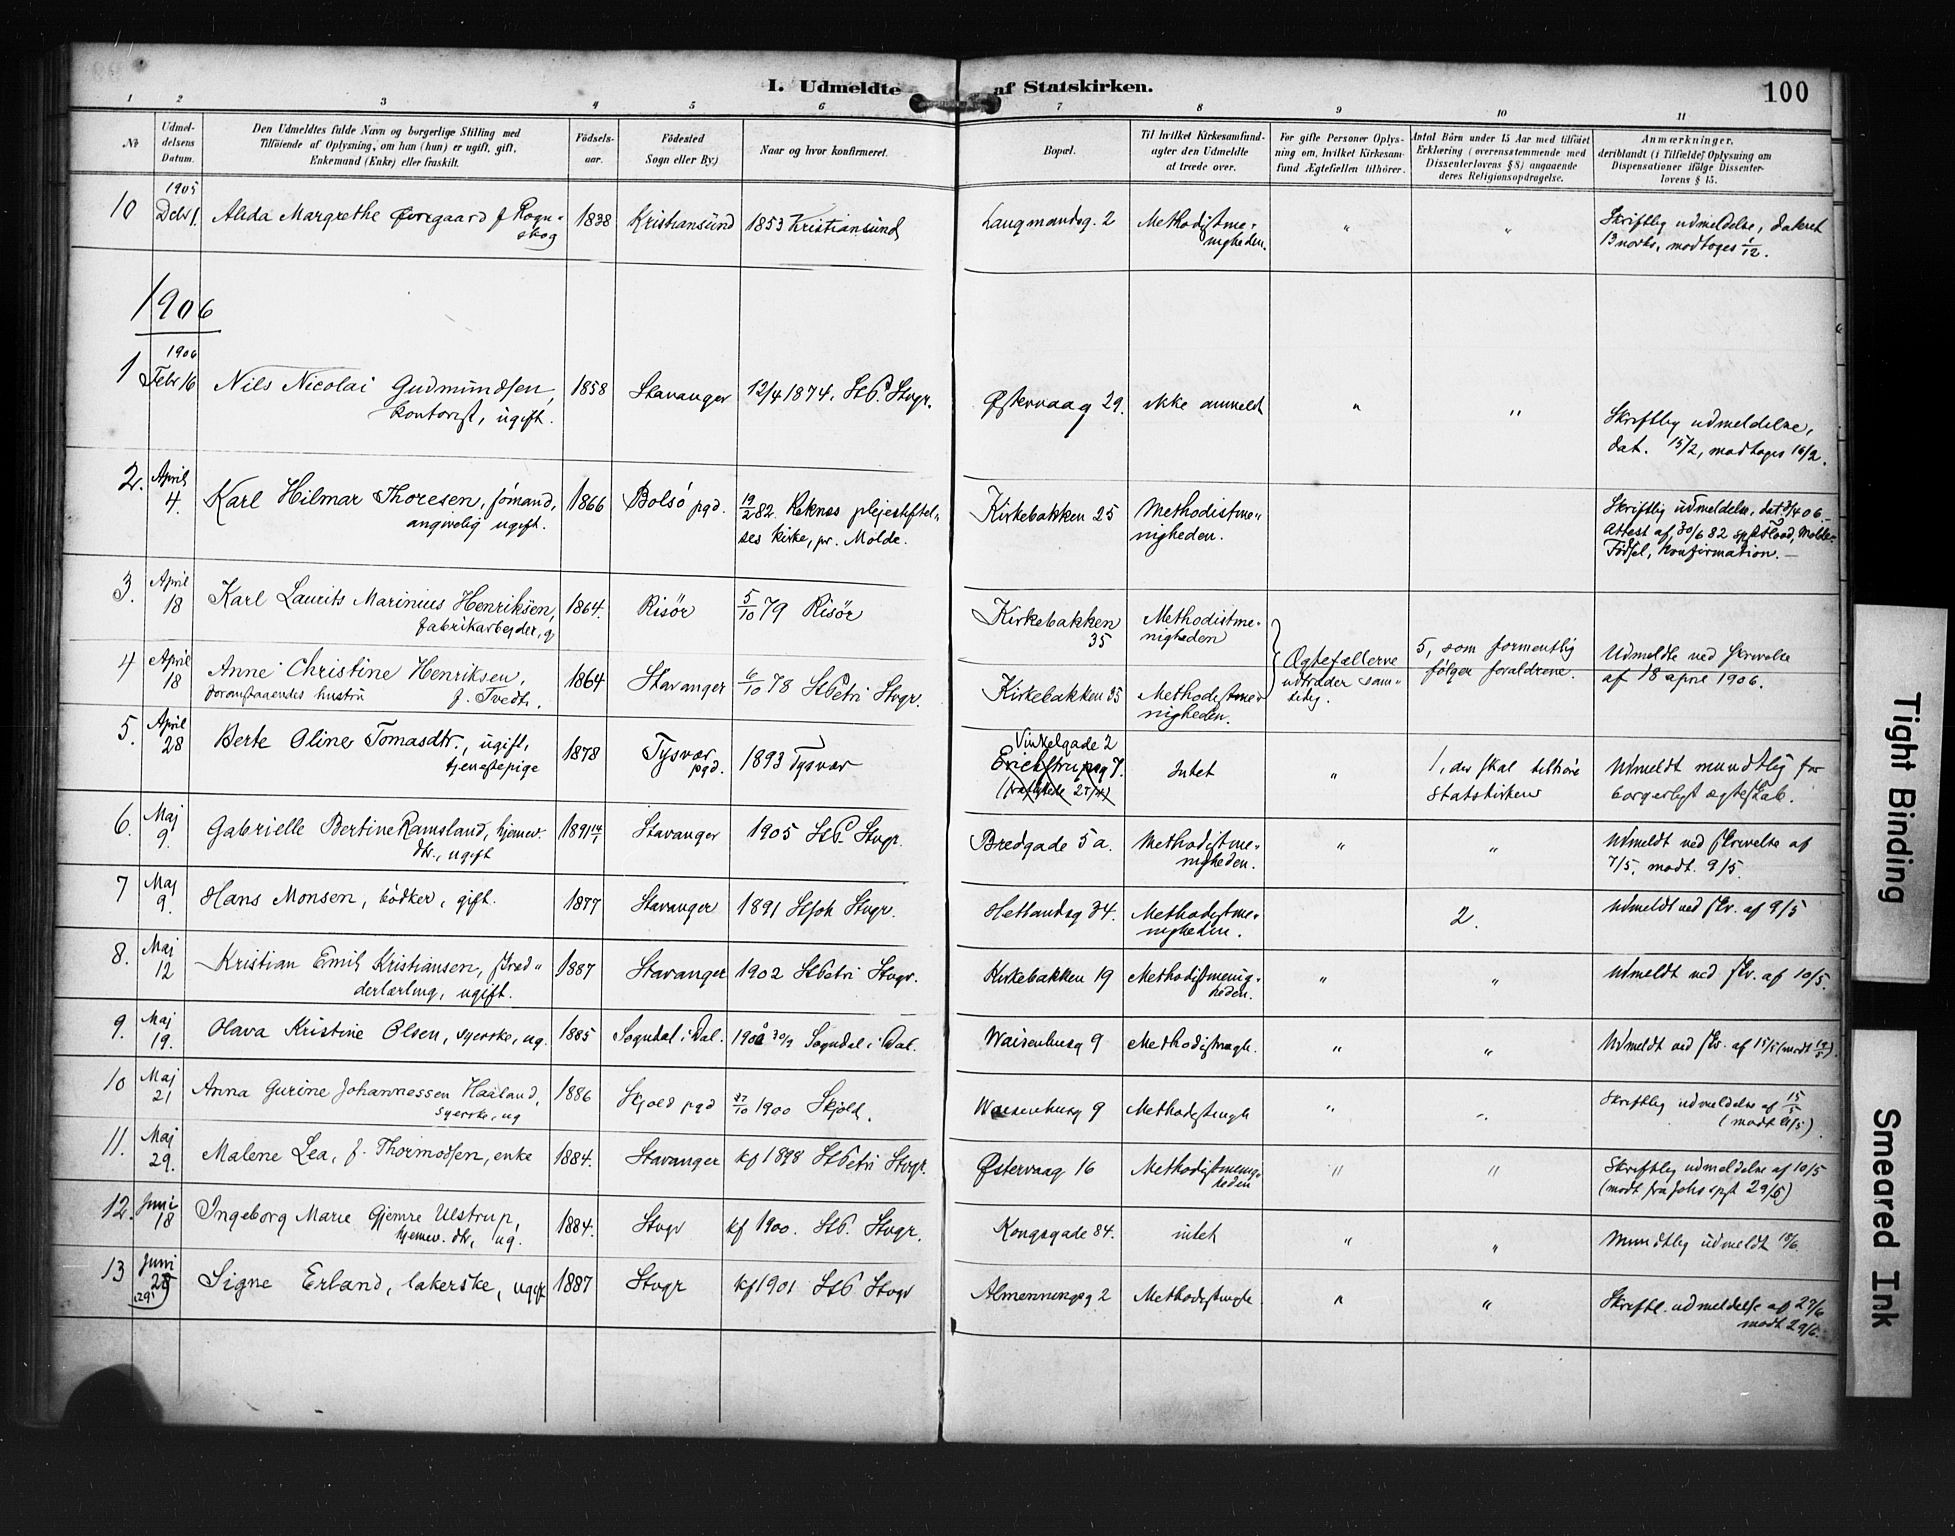 I. Udmeldte af Statskirken.
100
1 2 3 4 5 6 7 8 9 10 11
No
Udmel-
delsens
Datum.
Den Udmeldtes fulde Navn og borgerlige Stilling med
Tilföiende af Oplysning, om han (hun) er ugift, gift,
Enkemand (Enke) eller fraskilt.
Födsels-
aar.
Födested
Sogn eller By)
Naar og hvor konfirmeret.
Bopæl.
Til hvilket Kirkesamfund-
agter den Udmeldte
at træde over.
For gifte Personer Oplys-
ning om, hvilket Kirkesam-
fund Ægtefællen tilhörer.
Antal Börn under 15 Aar med tilföiet
Erklæring (overensstemmende med
Dissenterlovens § 8) angaaende
deres Religionsopdragelse.
Anmærkninger,
deriblandt (i Tilfælde) Oplysning om
Dispensationer ifölge Dissenter-
lovens § 15.
10 1905 Dcbr 1. Alida Margrethe Overgaard f Rogn-
skog 1838 Kristiansund 1853 Kristiansund Laugmandsg. 2 Methodistme-
nigheden. " " Skriftlig udmeldelse, dateret
13 novbr, modtoges 1/12.
1906
1 1906 Febr 16 Nils Nicolai Gudmundsen,
kontorist, ugift. 1858 Stavanger 12/4 1874. St P. Stvgr. Østervaag 29. ikke anmeldt " " Skriftlig udmeldelse,
dat. 15/2, modtoges 16/2.
2. April 4. Karl Hilmar Thoresen, sømand,
angivelig ugift. 1866 Bolsø pgd. 19/2 82. Reknes plejestiftel-
ses kirke, pr. Molde. Kirkebakken 25 Methodistme-
nigheden. Skriftlig udmeldelse, dat. 3/4 06. –
Attest af 30/6 82 Molde.
Fødsel, konfirmation. –
3. April 18 Karl Laurits Marinius Henriksen,
fabrikarbejder, g 1864. Risør 5/10 79 Risør Kirkebakken
35 Methodistme-
nigheden Ægtefællerne
udtræder sam-
tidig. 5, som formentlig
følger forældrene. Udmeldte ved skrivelse
af 18 april 1906.
4 April 18 Anne Christine Henriksen,
foranstaaendes hustru f. Tvedt. 1864 Stavanger 6/10 78 St Petri Stvgr. Kirkebakken 35 Methodistme-
nigheden.
5. April 28 Berte Oline Tomasdtr., ugift,
tjenestepige 1878 Tysvær
pgd. 1893 Tysvær Vinkelgade 2
Erichstrupsg 7. Intet " 1, der skal tilhøre
Statskirken Udmeldt mundtlig for
borgerligt ægteskab.
6. Maj 9. Gabrielle Bertine Ramsland, hjemev.
dtr., ugift 1891 14/1 Stavanger 1905 St P. Stvgr. Bredgade 5 a. Methodistme-
nigheden. " " Udmeldt ved skrivelse af
7/5, modt. 9/5.
7 Maj 9. Hans Monsen, bødker, gift. 1877 Stavanger 1891 St Joh Stvgr. Hetlandsg 34. Methodistme-
nigheden. 2. Udmeldt ved skr. af 9/5
8. Maj 12 Kristian Emil Kristiansen, skred-
derlærling, ugift. 1887 Stavanger 1902 St Petri Stvgr. Kirkebakken 19 Methodistmenig-
heden. " " Udmeldt ved skr. af 10/5.
9. Maj 19. Olava Kristine Olsen, syerske, ug. 1885 Sogndal i Dal. 1900 30/9 Sogndal i Dal. Waisenhusg 9 Methodistmgh. " " Udmeldt ved skr. af 15/5 (modt 19/5).
10 Maj 21 Anna Gurine Johannessen Haaland,
syerske, ug 1886 Skjold pgd 1900 Skjold. Waisenhusg 9 Methodistmgh " " Skriftlig udmeldelse af 15/5
(modt 21/5).
11. Maj 29. Malene Lea, f. Thormodsen, enke 1884. Stavanger kf 1898 St Petri Stvgr. Østervaag 16 Methodistmenig-
heden " " Skriftlig udmeldelse af 10/5
(modt fra Johs spgt 29/5)
12. Juni 18 Ingeborg Marie Gjemre Ulstrup,
hjemev. dtr, ug. 1884. Stvgr kf 1900. St P. Stvgr. Kongsgade 84. intet " " Mundtlig udmeldt 18/6.
13 Juni 28 (29) Signe Erland, lakerske, ugift 1887 Stvgr kf 1901 St P Stvgr Almenningsg 2 Methodistmgh. " " Skriftl. udmeldelse af 27/6
modt 29/6.
Tight Binding
Smeared Ink